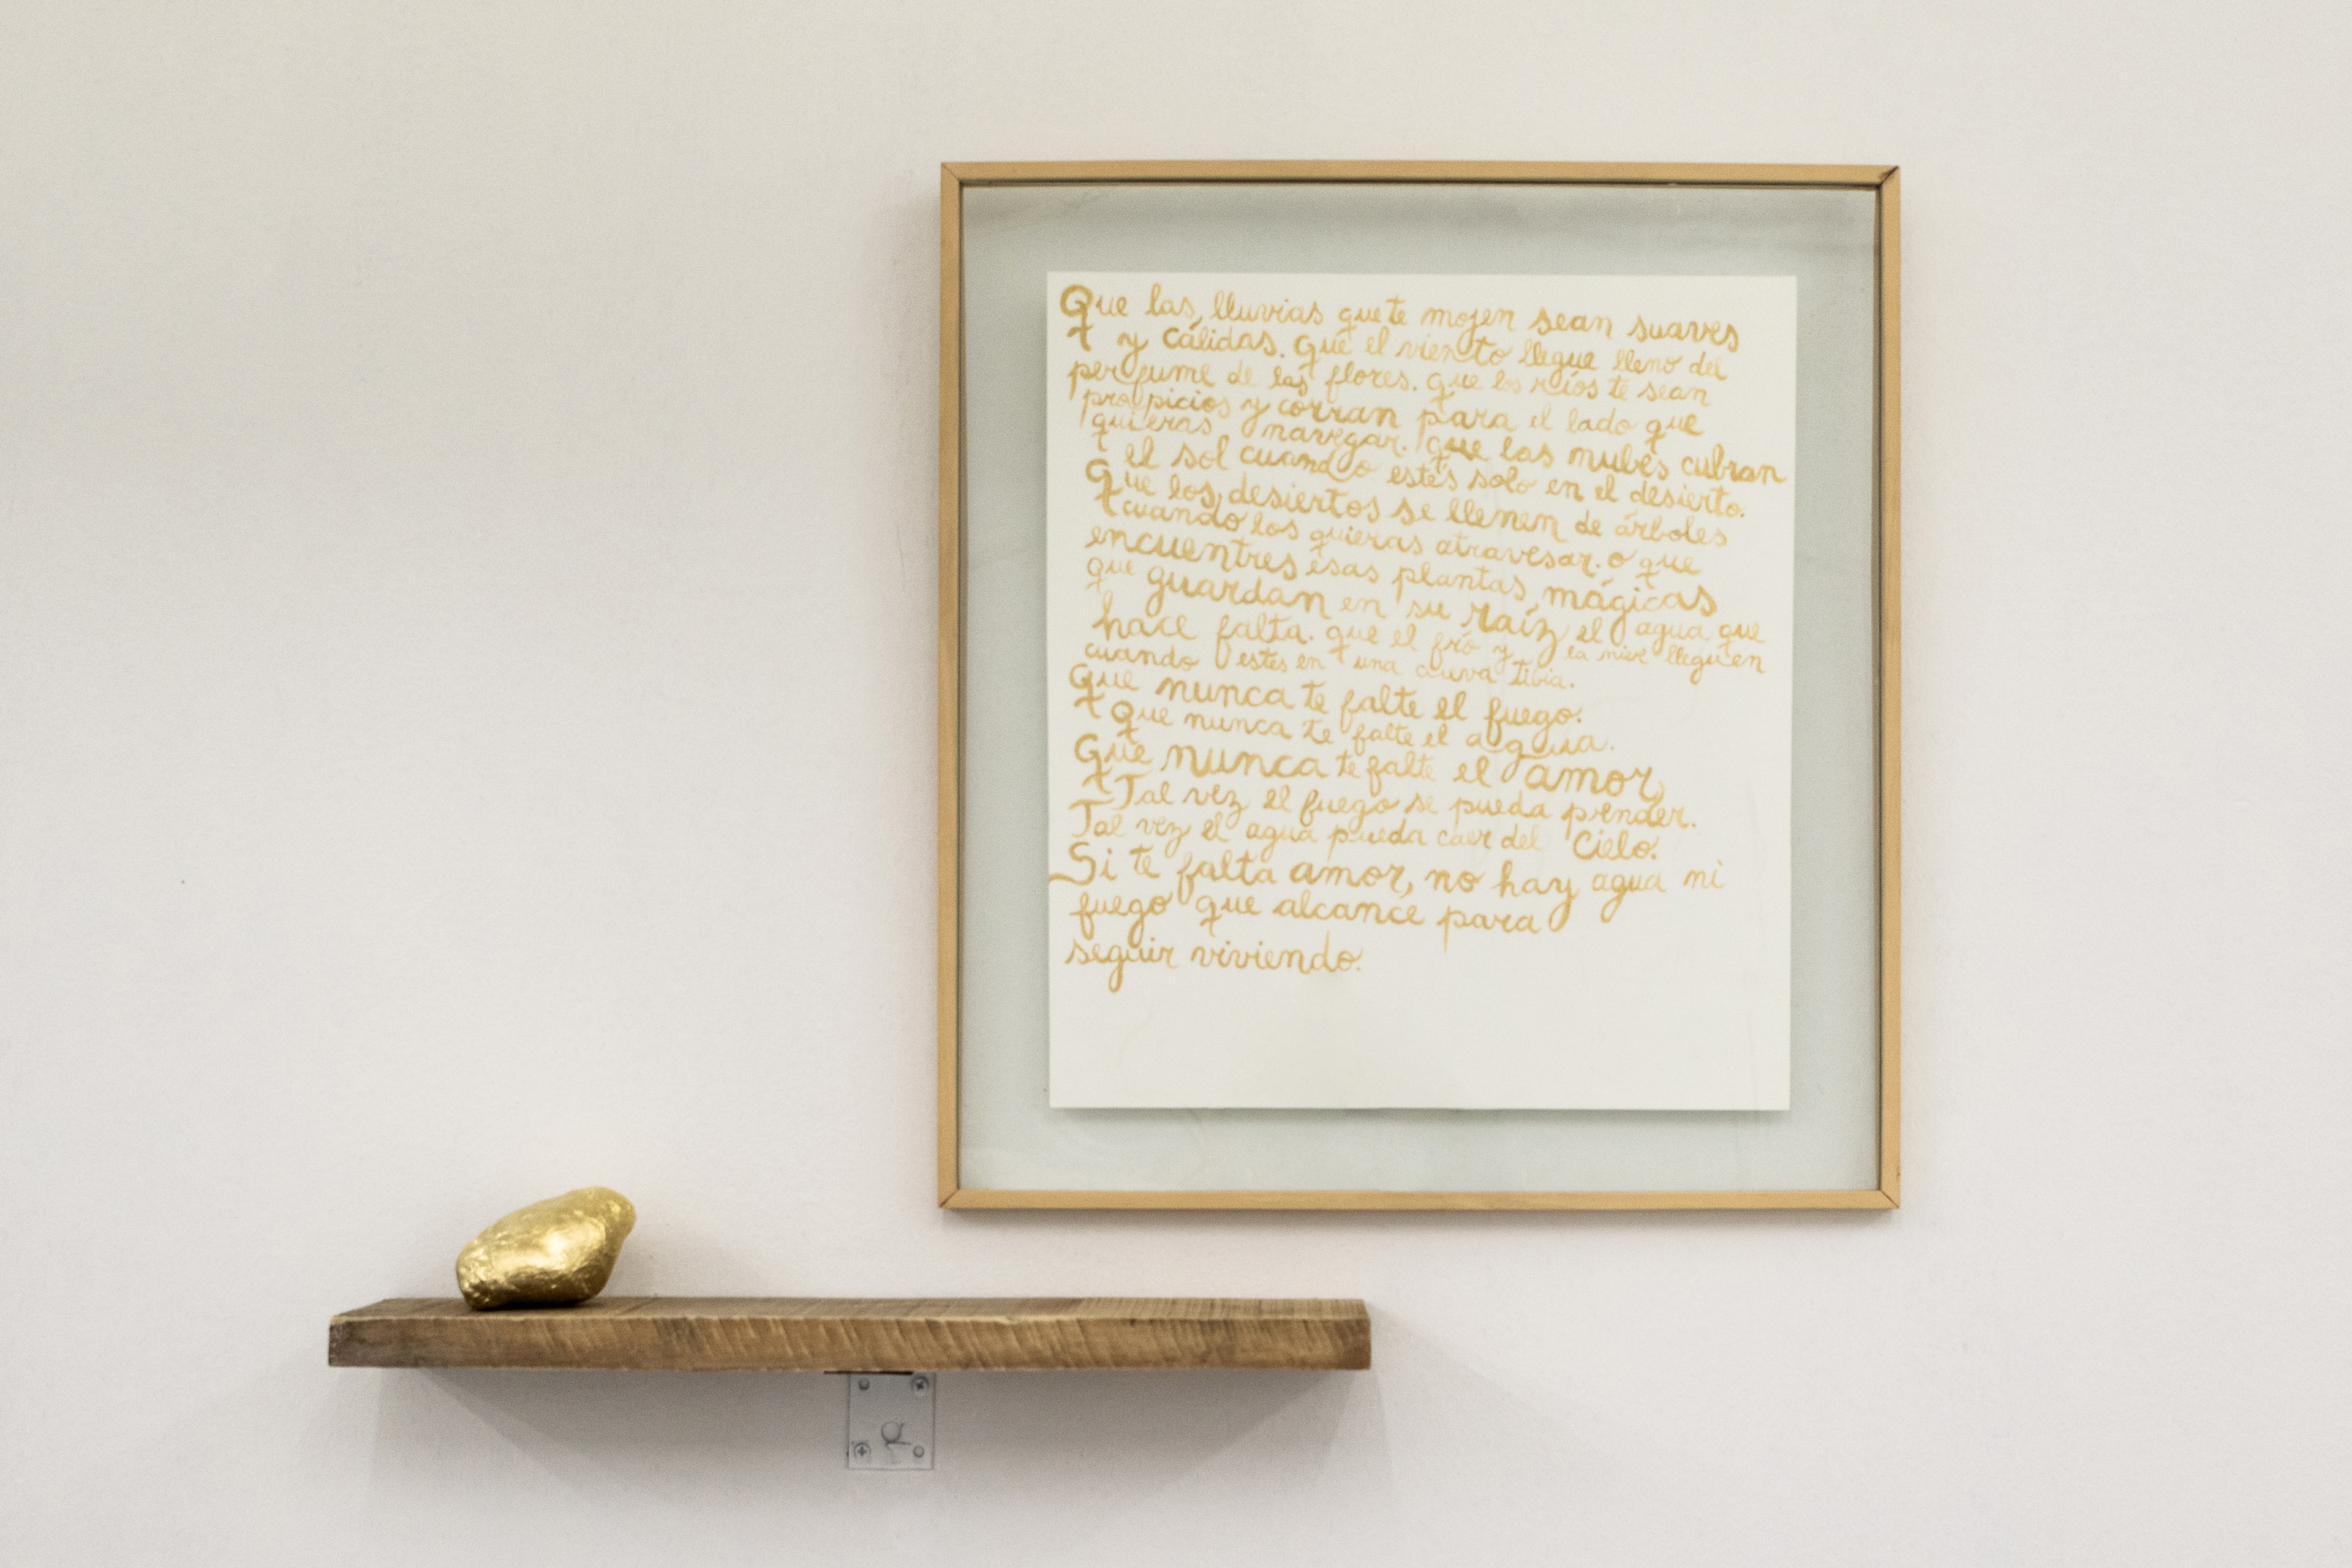 Que las lluvias que te mojen sean suaves
y cálidas. Que el viento llegue lleno del
perfume de las flores. Que los ríos te sean
propicios y corran para el lado que
quieras navegar. Que las nubes cubran
el sol cuando estés solo en el desierto.
Que los desiertos se llenen de árboles
cuando los quieras atravesar. O que
encuentres esas plantas mágicas
que guardan en su raíz el agua que
hace falta. Que el frío y la nieve lleguen
cuando estés en una cueva tibia.
Que nunca te falte el fuego.
Que nunca te falte el agua.
Que nunca te falte el amor.
Tal vez el fuego se pueda prender.
Tal vez el agua pueda caer del cielo.
Si te falta amor, no hay agua ni
fuego que alcance para
seguir viviendo.